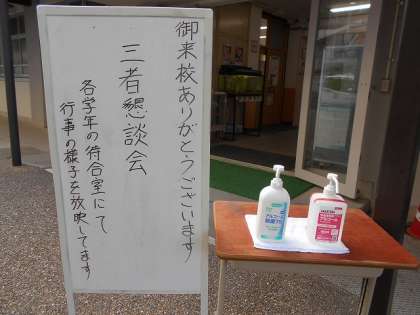 御来校ありがとうございます
三者懇談会
各学年の待合室にて
行事の様子を放映してます
アルコール